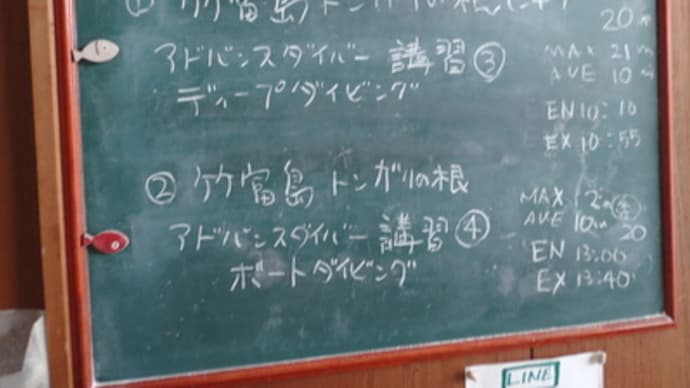 ① 竹富島 トンガリの根
20m
アドバンスダイバー 講習③
MAX 21m
AVE 10m
ディープダイビング
EN 10:10
EX 10:55
② 竹富島 トンガリの根
MAX 12m
アドバンスダイバー 講習④
AVE 10m
20
ボートダイビング
EN 13:00
EX 13:40
LINE